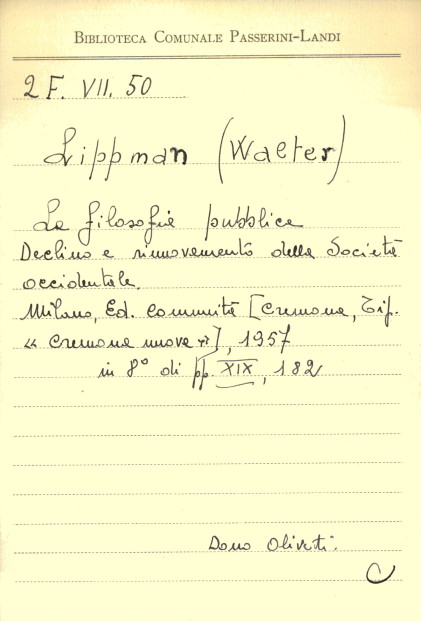 BIBLIOTECA COMUNALE PASSERINI-LANDI
2 F. VII. 50
Lippman (Walter)
La filosofia pubblica
Declino e rinnovamento della Società
occidentale.
Milano, Ed. Comunità [Cremona, Tip.
"Cremona nuova"], 1957
in 8° di pp. XIX, 182
Dono Olivetti.
C